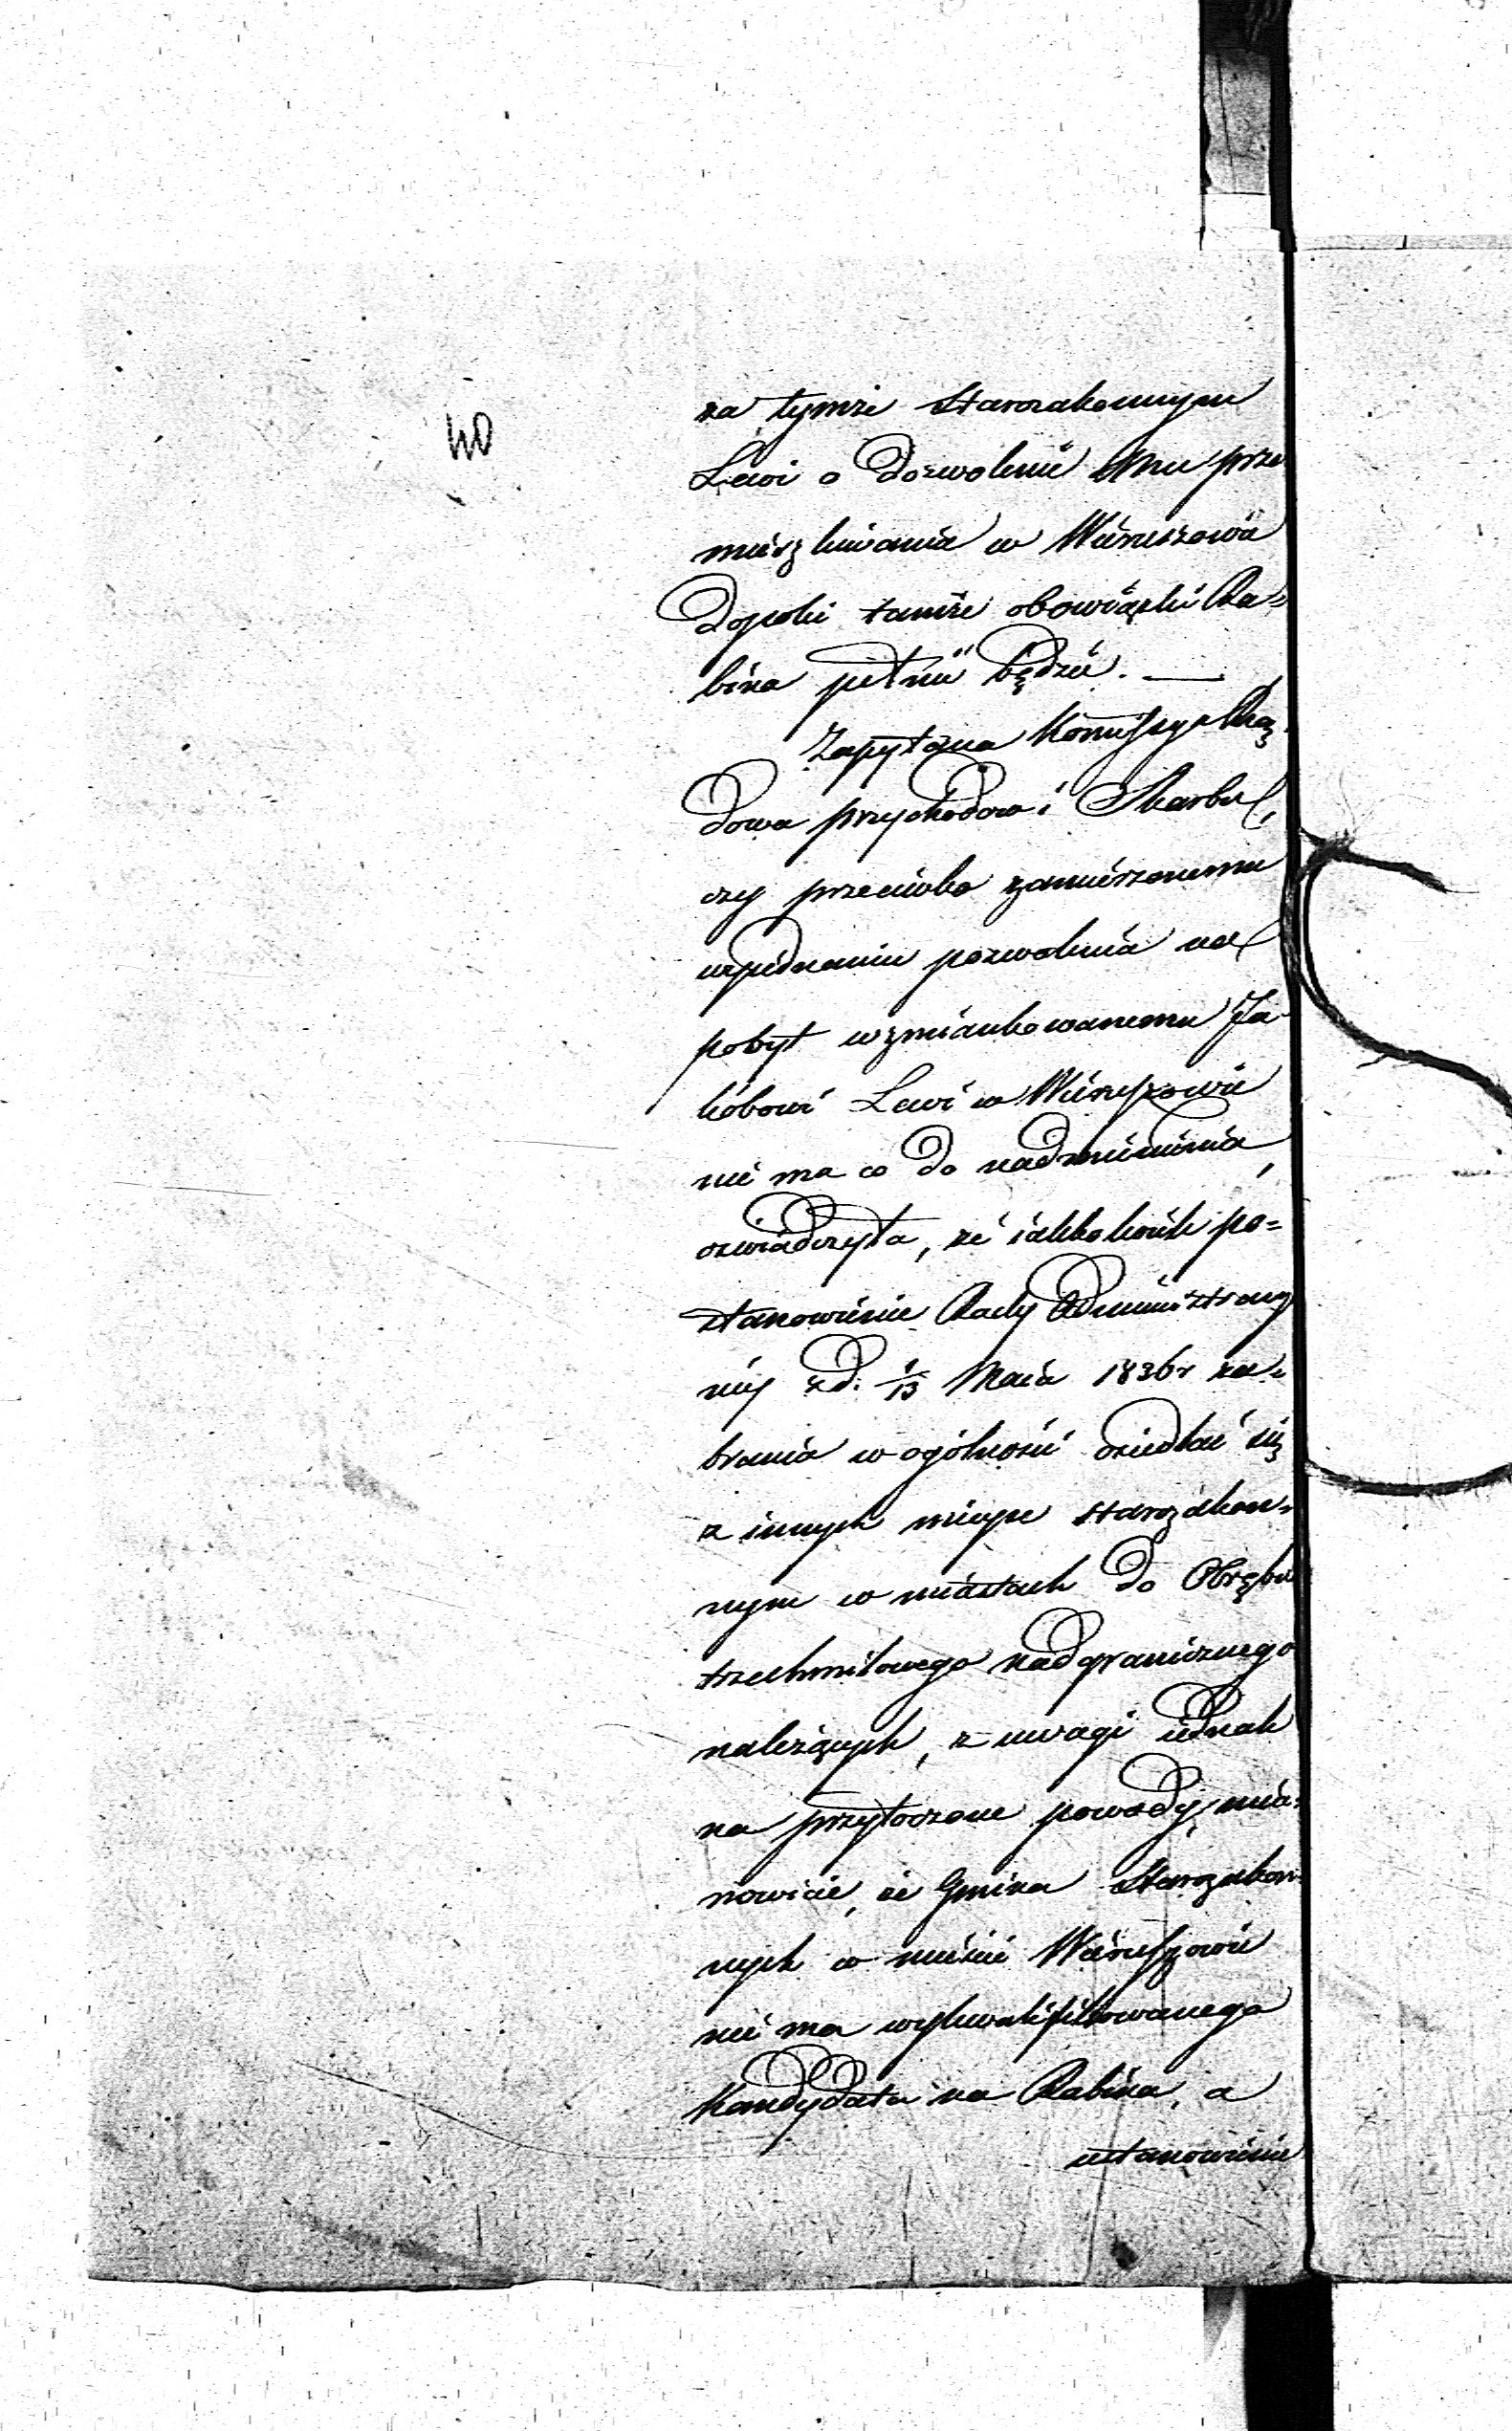 40
za tymże Starozakonnym
Lewi o dozwolenie Mu prze
mieszkiwania w Wieruszowie
dopóki tamże obowiązki Ra=
bina pełnić będzie. —
Zapytana Kommissya Rzą
dowa przychodów i Skarbu,
czy przeciwko zamierzonemu
wyjednaniu pozwolenia na
pobyt wzmiankowanemu Ja
kóbowi Lewi w Wieruszowie
nie ma co do nadmienienia,
oświadczyła, że iakkolwiek po=
stanowienie Rady Administracyi
néj z d. 1/13 Maia 1836 r za=
brania w ogólności osiedlać się
z innych mieysc starozakon=
nym w miastach do Obrębu
trzechmilowego nadgranicznego
należących, z uwagi iednak
na przytoczone powody, mia=
nowicie, że Gmina Starozakon=
nych w mieście Wieruszowie
nie ma wykwalifikowanego
Kandydata na Rabina, a
ustanowienie